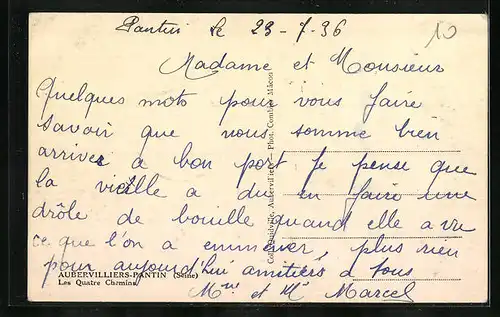 Pantin le 23-7-36
10
Madame et Monsieur
Quelques mots pour vous faire
savoir que nous somme bien
arrives a bon port Je pense que
la vieille a du en faire une
drôle de bouille quand elle a vu
ce que l'on a emmener, plus rien
pour aujourd'hui amitiers a tous
Mme et Mr Marcel
AUBERVILLIERS-PANTIN (Seine)
Les Quatre Chemins
Aubervilliers — Phot. Combier Mâcon